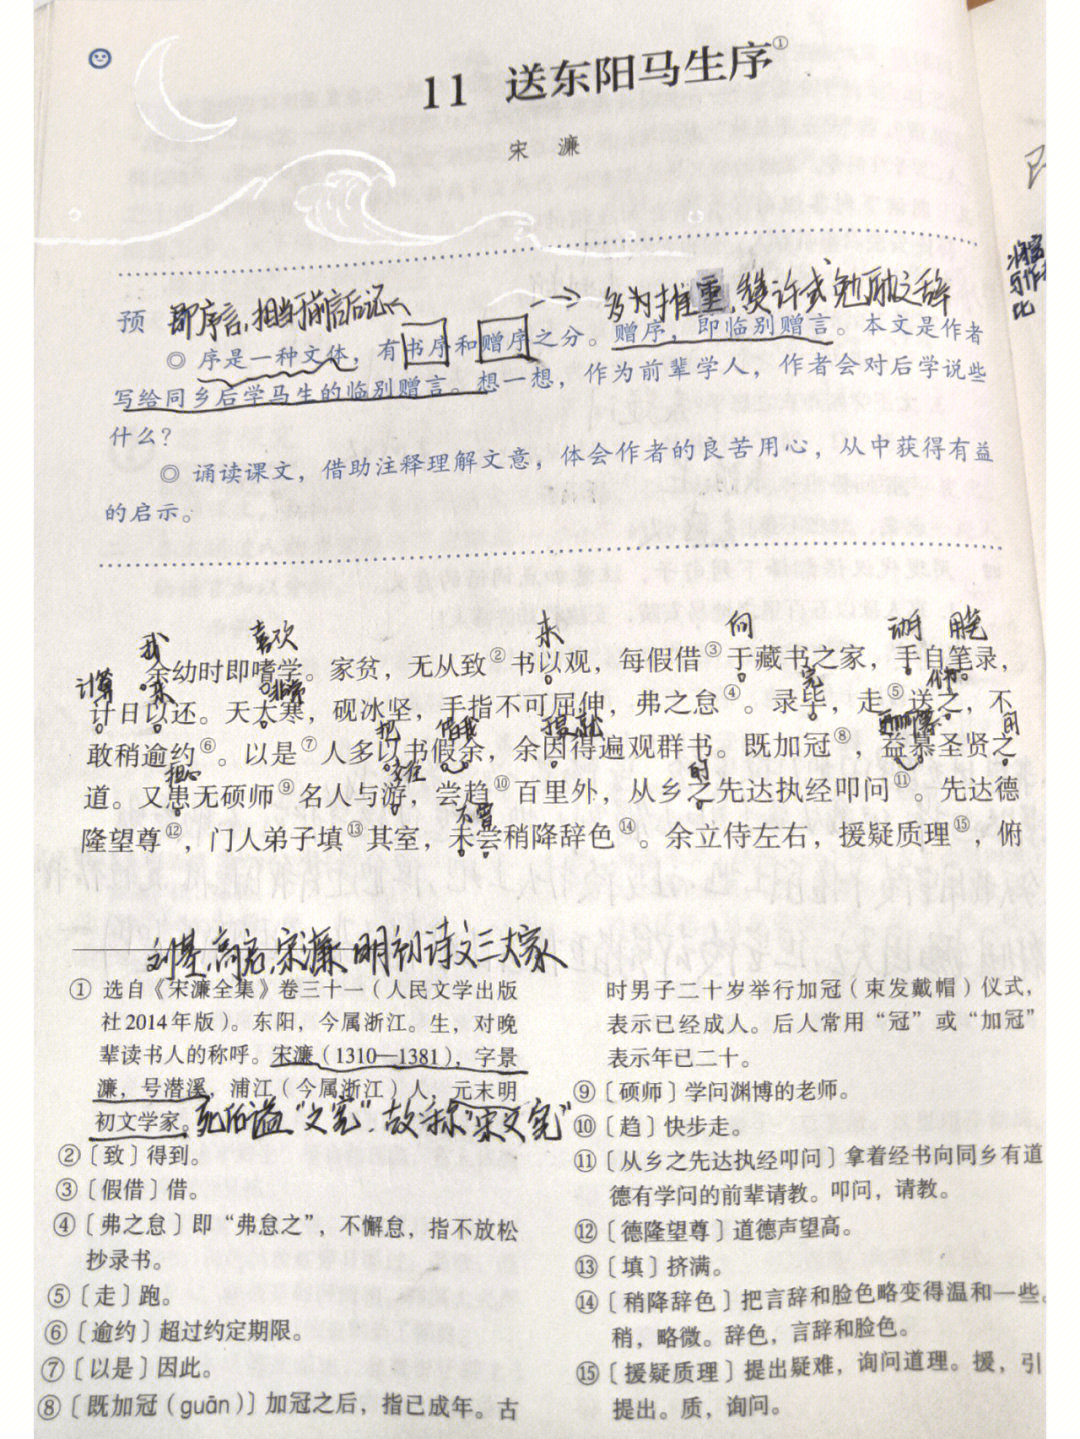 11 送东阳马生序①
宋 濂
即序言,相当前言后记
多为推重、赞许或勉励之辞
预
◎ 序是一种文体，有书序和赠序之分。赠序，即临别赠言。本文是作者
写给同乡后学马生的临别赠言。想一想，作为前辈学人，作者会对后学说些
什么？
◎ 诵读课文，借助注释理解文意，体会作者的良苦用心，从中获得有益
的启示。
我 喜欢 来 向
余幼时即嗜学。家贫，无从致②书以观，每假借③于藏书之家，手自笔录，
计算 来 非常 完
计日以还。天大寒，砚冰坚，手指不可屈伸，弗之怠④。录毕，走⑤送之，不
把
敢稍逾约⑥。以是⑦人多以书假余，余因得遍观群书。既加冠⑧，益慕圣贤之
担心 的
道。又患无硕师⑨名人与游，尝趋⑩百里外，从乡之先达执经叩问⑪。先达德
不曾
隆望尊⑫，门人弟子填⑬其室，未尝稍降辞色⑭。余立侍左右，援疑质理⑮，俯
刘基、高启、宋濂 明初诗文三大家
① 选自《宋濂全集》卷三十一（人民文学出版
社2014年版）。东阳，今属浙江。生，对晚
辈读书人的称呼。宋濂（1310—1381），字景
濂，号潜溪，浦江（今属浙江）人，元末明
初文学家。死后谥“文宪”,故称“宋文宪”
②〔致〕得到。
③〔假借〕借。
④〔弗之怠〕即“弗怠之”，不懈怠，指不放松
抄录书。
⑤〔走〕跑。
⑥〔逾约〕超过约定期限。
⑦〔以是〕因此。
⑧〔既加冠（guān）〕加冠之后，指已成年。古
时男子二十岁举行加冠（束发戴帽）仪式，
表示已经成人。后人常用“冠”或“加冠”
表示年已二十。
⑨〔硕师〕学问渊博的老师。
⑩〔趋〕快步走。
⑪〔从乡之先达执经叩问〕拿着经书向同乡有道
德有学问的前辈请教。叩问，请教。
⑫〔德隆望尊〕道德声望高。
⑬〔填〕挤满。
⑭〔稍降辞色〕把言辞和脸色略变得温和一些。
稍，略微。辞色，言辞和脸色。
⑮〔援疑质理〕提出疑难，询问道理。援，引
提出。质，询问。